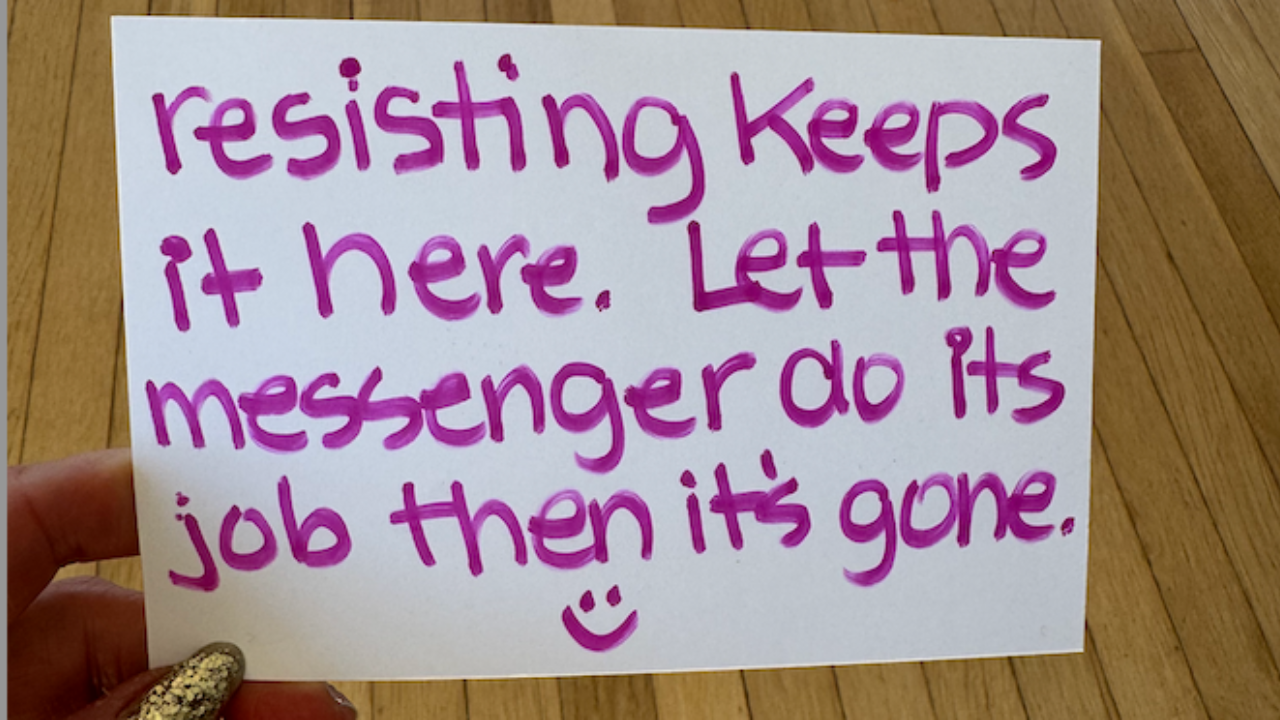 resisting keeps
it here. Let the
messenger do its
job then it's gone.